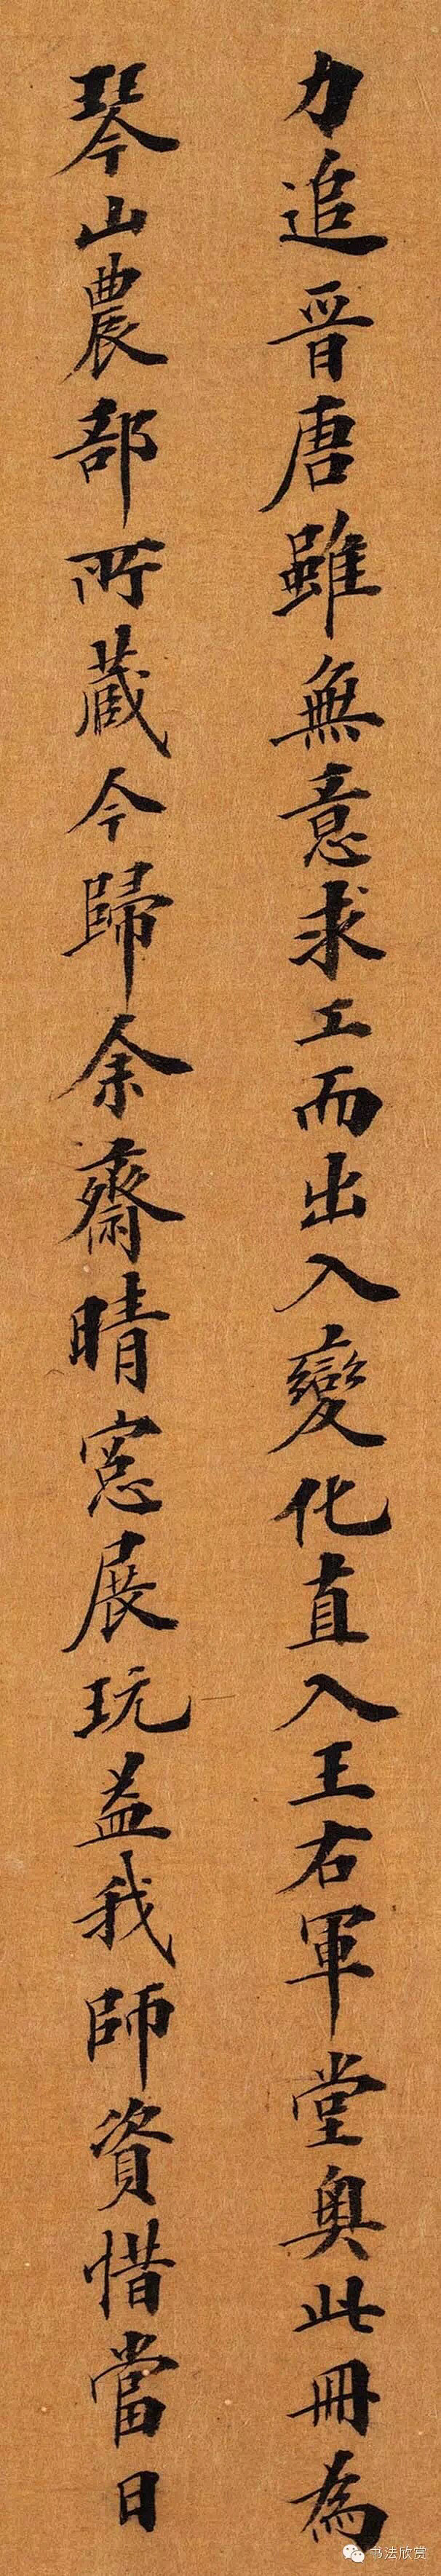 力追晉唐雖無意求工而出入變化直入王右軍堂奧此冊為
琴山農部所藏今歸余齋晴窻展玩益我師資惜當日
书法欣赏